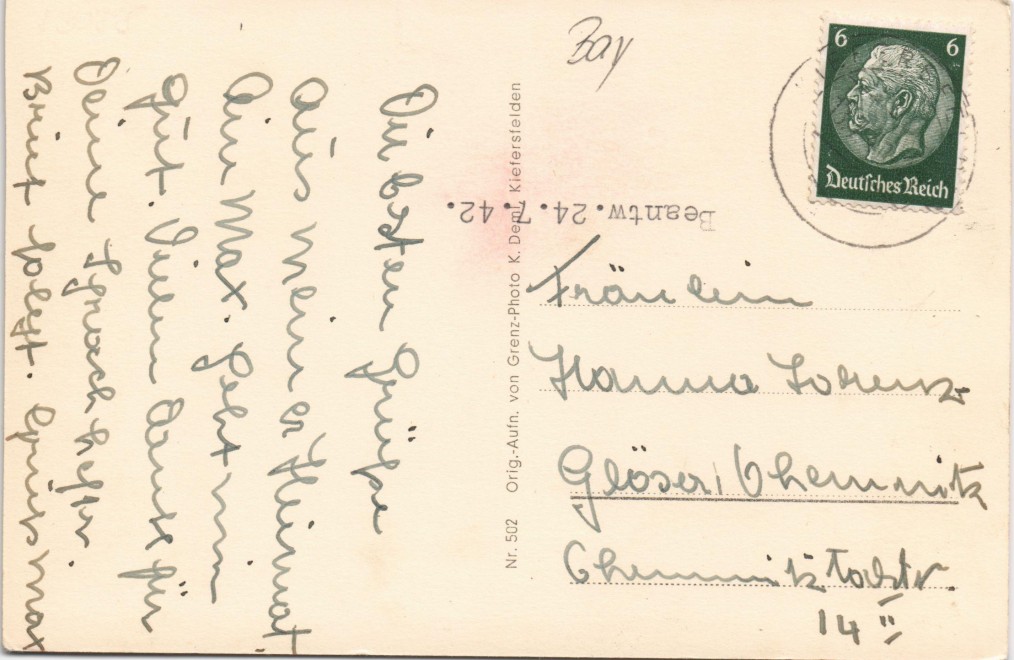 Die besten Grüße
aus meiner Heimat
dein Max. Geht mir
gut. Vielen Dank für
Deine
Brief folgt. Gruß Max
Nr. 502 Orig.-Aufn. von Grenz-Photo K. Deml, Kiefersfelden
Bay
6 6
Deutsches Reich
Beantw. 24.7.42.
Fräulein
Hanna Lorenz
Glösa / Chemnitz
Chemnitztalstr.
14 II